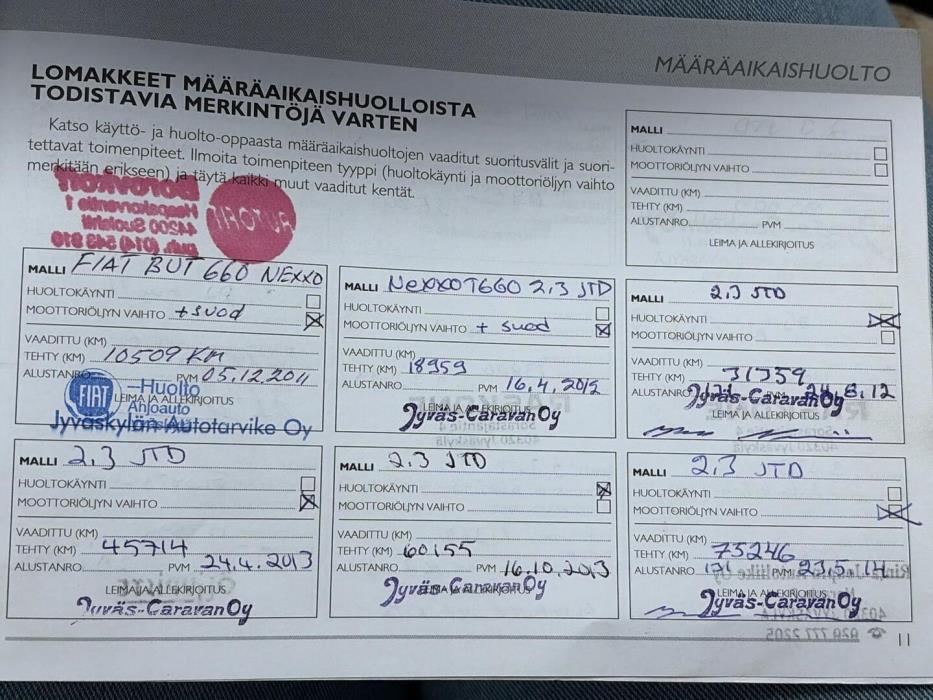 MÄÄRÄAIKAISHUOLTO
LOMAKKEET MÄÄRÄAIKAISHUOLLOISTA
TODISTAVIA MERKINTÖJÄ VARTEN
Katso käyttö- ja huolto-oppaasta määräaikaishuoltojen vaaditut suoritusvälit ja suori-
tettavat toimenpiteet. Ilmoita toimenpiteen tyyppi (huoltokäynti ja moottoriöljyn vaihto
merkitään erikseen) ja täytä kaikki muut vaaditut kentät.
MALLI
HUOLTOKÄYNTI
MOOTTORIÖLJYN VAIHTO
VAADITTU (KM)
TEHTY (KM)
ALUSTANRO. PVM
LEIMA JA ALLEKIRJOITUS
MALLI FIAT BUT 660 NEXXO
HUOLTOKÄYNTI
MOOTTORIÖLJYN VAIHTO + suod
VAADITTU (KM)
TEHTY (KM) 10509 KM
ALUSTANRO PVM 05.12.2011
LEIMA JA ALLEKIRJOITUS
FIAT -Huolto
Ahjoauto
Jyväskylän Autotarvike Oy
MALLI NEXXO T660 2,3 JTD
HUOLTOKÄYNTI
MOOTTORIÖLJYN VAIHTO + suod
VAADITTU (KM)
TEHTY (KM) 18959
ALUSTANRO. PVM 16.4.2012
LEIMA JA ALLEKIRJOITUS
Jyväs-Caravan Oy
MALLI 2,3 JTD
HUOLTOKÄYNTI
MOOTTORIÖLJYN VAIHTO
VAADITTU (KM)
TEHTY (KM) 31359
ALUSTANRO 8.12
Jyväs-Caravan Oy
LEIMA JA ALLEKIRJOITUS
MALLI 2,3 JTD
HUOLTOKÄYNTI
MOOTTORIÖLJYN VAIHTO
VAADITTU (KM)
TEHTY (KM) 45714
ALUSTANRO. PVM 24.4.2013
LEIMA JA ALLEKIRJOITUS
Jyväs-Caravan Oy
MALLI 2,3 JTD
HUOLTOKÄYNTI
MOOTTORIÖLJYN VAIHTO
VAADITTU (KM)
TEHTY (KM) 60155
ALUSTANRO. PVM 16.10.2013
LEIMA JA ALLEKIRJOITUS
Jyväs-Caravan Oy
MALLI 2,3 JTD
HUOLTOKÄYNTI
MOOTTORIÖLJYN VAIHTO
VAADITTU (KM)
TEHTY (KM) 75246
ALUSTANRO. 121 PVM 23.5.14
LEIMA JA ALLEKIRJOITUS
Jyväs-Caravan Oy
11